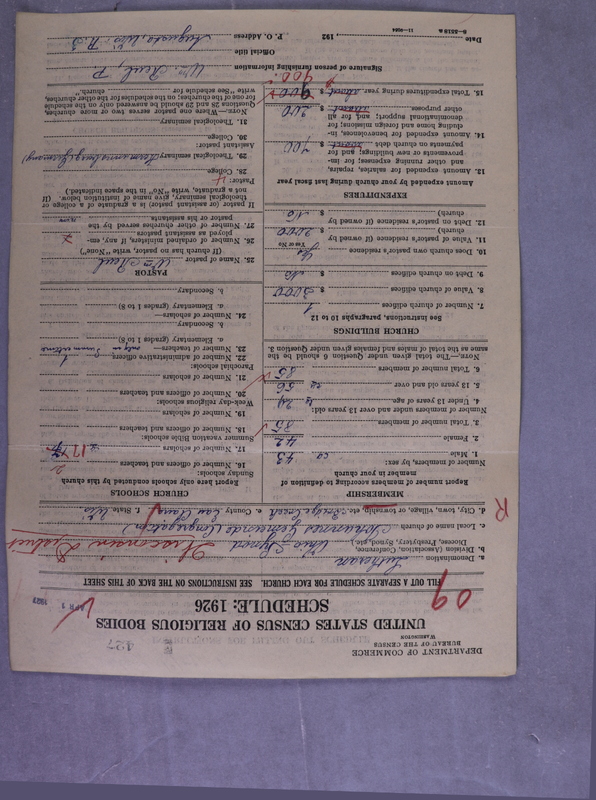 DEPARTMENT OF COMMERCE
BUREAU OF THE CENSUS
WASHINGTON
427
UNITED STATES CENSUS OF RELIGIOUS BODIES
SCHEDULE: 1926
APR 1 1927
09
FILL OUT SEPARATE SCHEDULE FOR EACH CHURCH. SEE INSTRUCTIONS ON THE BACK OF THIS SHEET
a. Denomination Lutheran
b. Division (Association, Conference, Diocese, Presbytery, Synod, etc.) Ohio Synod Wisconsin District
c. Local name of church
d. City, town, village, or township, etc. Bridge Creek e. County Eau Claire f. State Wis.
MEMBERSHIP
Report number of members according to definition of member in your church
Number of members, by sex:
1. Male ca 43
2. Female 42
3. Total number of members 85
Number of members under and over 13 years old:
4. Under 13 years of age
5. 13 years old and over ca 56
6. Total number of members 85
NOTE.—The total given under Question 6 should be the same as the total of males and females given under Question 3.
CHURCH BUILDINGS
See instructions, paragraphs 10 to 12
7. Number of church edifices 1
8. Value of church edifices $ 3000
9. Debt on church edifices $ No
10. Does own pastor's residence Yes
Yes or No
11. Value of pastor's residence (if owned by church) $ 2000
12. Debt on pastor's residence (if owned by church) $ No
EXPENDITURES
Amount expended by your church during last fiscal year
13. Amount expended for salaries, repairs, and other running expenses; for improvements or new buildings; and for payments on church debt about $ 700
14. Amount expended for benevolences, including home and foreign missions; for denominational support; and for all other purposes about $ 200
15. Total expenditures during year about $ 900
900
CHURCH SCHOOLS
Report here only schools conducted by this church
Sunday schools:
16. Number of officers and teachers 2
17. Number of scholars 17
Summer vacation Bible schools:
18. Number of officers and teachers
19. Number of scholars
Week-day religious schools:
20. Number of officers and teachers
21. Number of scholars
Parochial schools:
22. Number of administrative officers 1
23. Number of teachers—
a. Elementary (grades 1 to 8)
b. Secondary
24. Number of scholars—
a. Elementary (grades 1 to 8)
b. Secondary
PASTOR
25. Name of pastor Wm. Reul
(If church has no pastor, write "None")
26. Number of ordained ministers, if any, employed as assistant pastors
27. Number of other churches served by the pastor or his assistants
If pastor (or assistant pastor) is a graduate of a college or theological seminary, give name of institution below. (If not a graduate, write "No" in the space indicated.)
Pastor:
28. College
29. Theological seminary Hermannsburg, Germany
Assistant pastor:
30. College
31. Theological seminary
NOTE.—Where one pastor serves two or more churches, Questions 28 and 29 should be answered only on the schedule for one of the churches; on the schedules for the other churches, write "See schedule for church."
Signature of person furnishing information Wm. Reul, P.
Official title
Date 192 P. O. Address Augusta, Wis. R. 3
11—9024
R